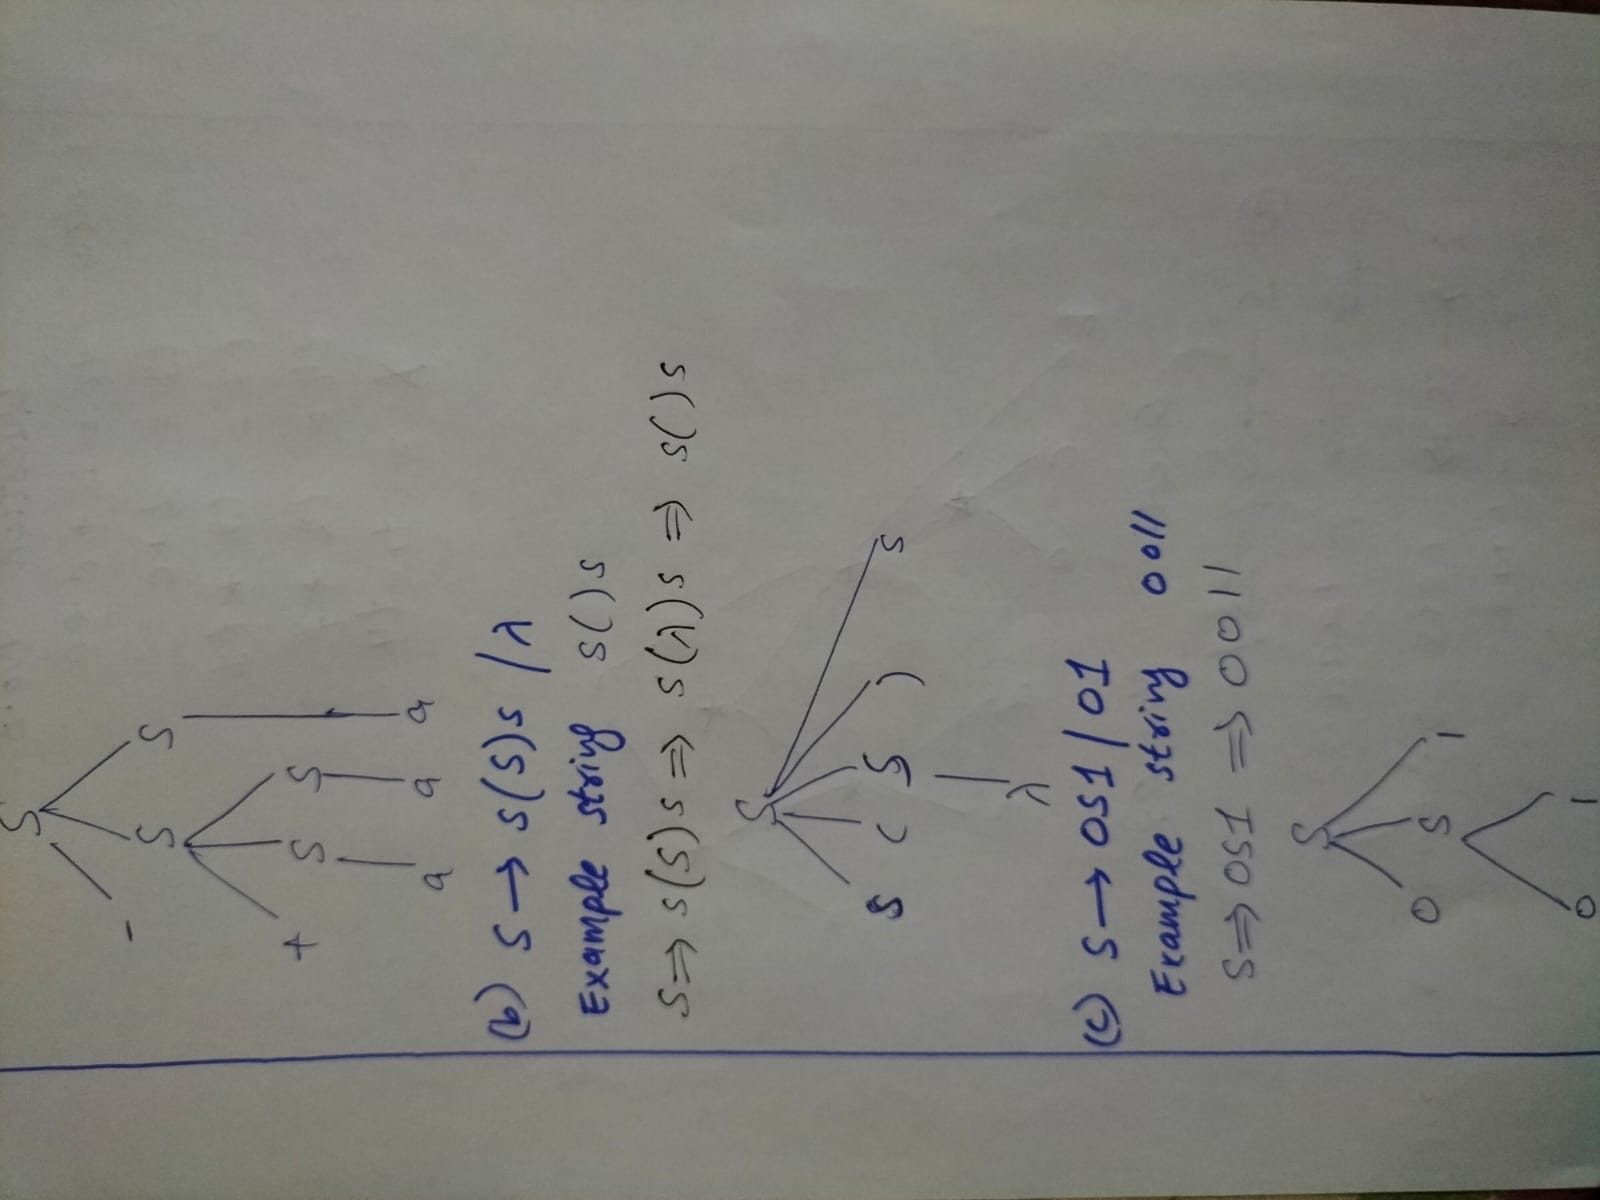 S
- S S
+ S S a
a a
(b) S → S(S)S / λ
Example string S()S
S ⇒ S(S)S ⇒ S(λ)S ⇒ S()S
S
S ( S ) S
λ
(c) S → 0S1 / 01
Example string 0011
S ⇒ 0S1 ⇒ 0011
S
0 S 1
0 1